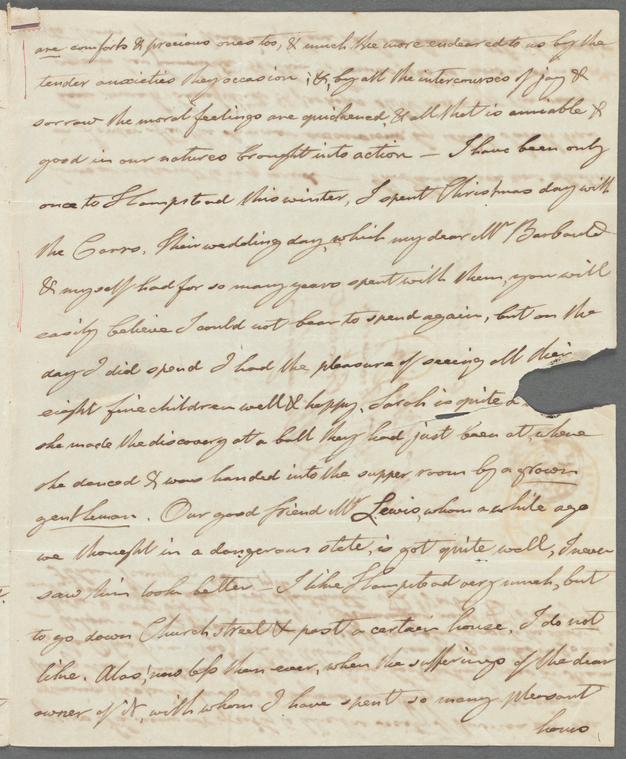 are comforts & precious ones too, & much the more endeared to us by the
tender anxieties they occasion; &, by all the intercourses of joy &
sorrow the moral feelings are quickened, & all that is amiable &
good in our natures brought into action — I have been only
once to Hampstead this winter, I spent Christmas day with
the Carrs. Their wedding day, which my dear Mr Barbauld
& myself had for so many years spent with them, you will
easily believe I could not bear to spend again, but on the
day I did spend I had the pleasure of seeing all their
eight fine children well & happy. Sarah is quite a
she made the discovery at a ball they had just been at, where
she danced & was handed into the supper room by a grown
gentleman. Our good friend Mr Lewis, whom a while ago
we thought in a dangerous state, is got quite well, I never
saw him look better — I like Hampstead very much, but
to go down Church street & past a certain house, I do not
like. Alas! now less than ever, when the sufferings of the dear
owner of it, with whom I have spent so many pleasant
hours